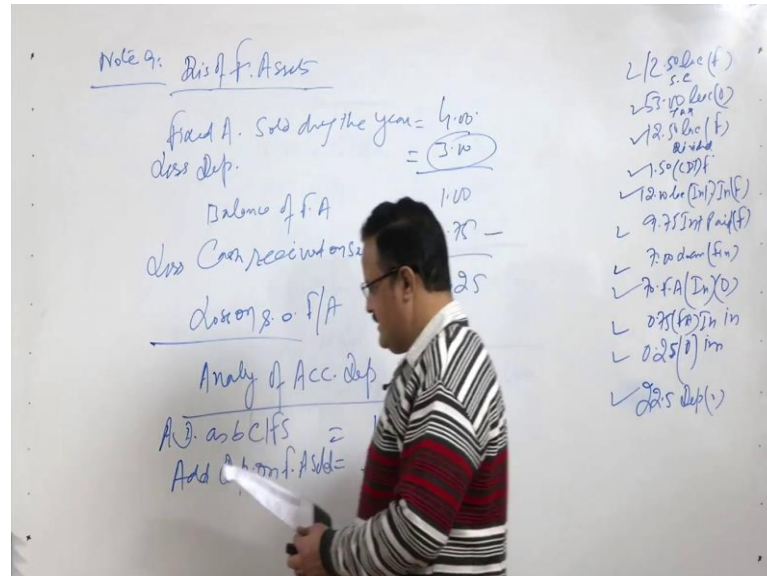 Note 9: Dis of F. Assets
Fixed A. Sold durg the year = 4.00
Less Dep. = 3.00
Balance of F.A 1.00
Less Cash received on S .75 —
Loss on S. o. F/A .25
Analy of Acc. Dep
A.D. as b C/fS =
Add Dep. on f. A Sold =
12.50 lac (f)
S.C
53.00 lac (0)
Tax
12.50 lac (f)
Divided
1.50 (CDT) f
12.00 lac (Int) In (f)
9.75 Int Paid (f)
7.00 (fin)
70. F.A (In) (0)
0.75 (FA) In in
0.25 (0) in
22.5 Dep ( )